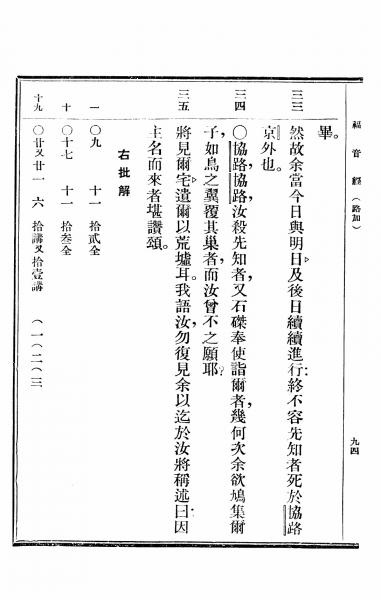 福音經（路加）
九四
畢。
三三 然故余當今日與明日及後日續續進行終不容先知者死於協路
京外也。
三四 〇協路協路，汝殺先知者，又石磔奉使詣爾者，幾何次余欲鳩集爾
子，如鳥之翼覆其巢者，而汝曾不之願耶？
三五 將見爾宅遺爾以荒墟耳。我語汝，勿復見余以迄於汝將稱述曰因
主名而來者堪讚頌。
右批解
一 〇九 十一 拾貳全
十 〇十七 十一 拾叁全
十九 〇廿又廿一 六 拾講又拾壹講 （一（二（三